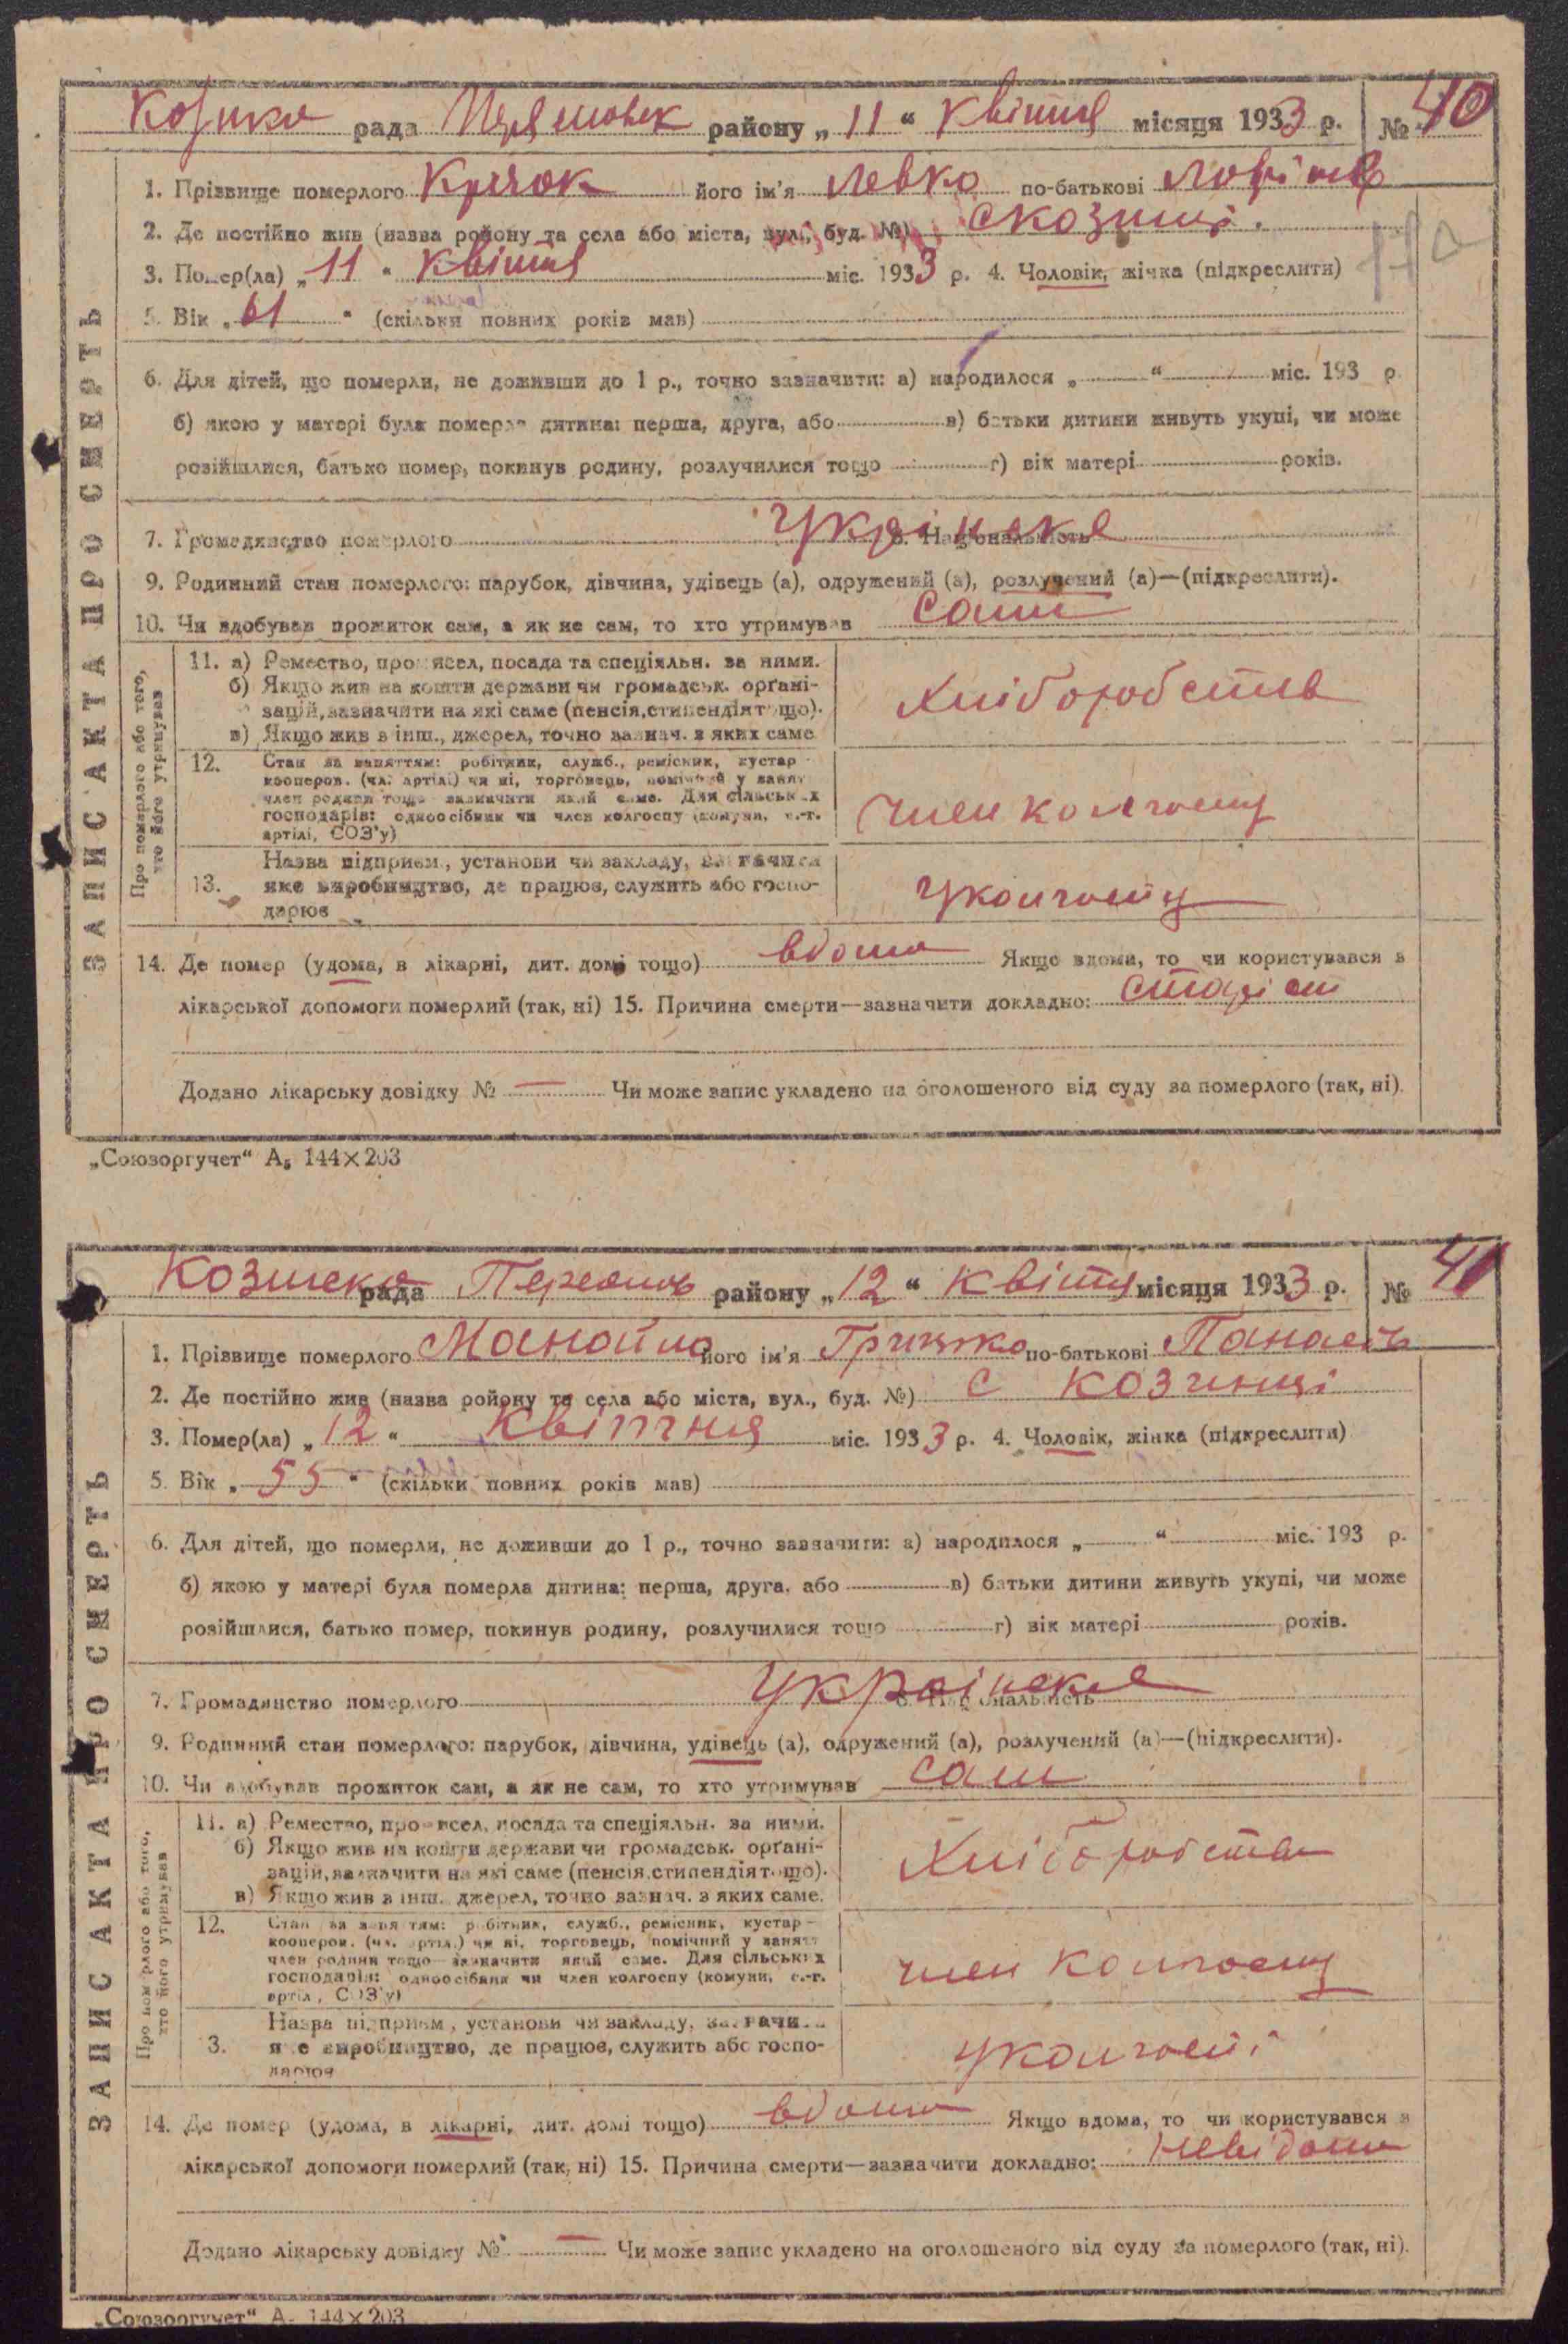 рада район у „ 11 “ Квітня місяця 1933 р. № 40
1. Прізвище померлого Крячок його ім'я Левко по-батькові
2. Де постійно жив (назва ройону та села або міста, вул., буд. №) с Козинці.
3. Помер(ла) „ 11 “ Квітня міс. 1933 р. 4. Чоловік, жінка (підкреслити)
5. Вік „ 61 “ (скільки повних років мав)
6. Для дітей, що померли, не доживши до 1 р., точно зазначити: а) народилося „ “ міс. 193 р.
б) якою у матері була померла дитина: перша, друга, або в) батьки дитини живуть укупі, чи може
розійшлися, батько помер, покинув родину, розлучилися тощо г) вік матері років.
7. Громадянство померлого Українське 8. Національність
9. Родинний стан померлого: парубок, дівчина, удівець (а), одружений (а), розлучений (а)—(підкреслити).
10. Чи здобував прожиток сам, а як не сам, то хто утримував сам
ЗАПИС АКТА ПРО СМЕРТЬ
Про померлого або того,
хто його утримував
11. а) Ремество, промисел, посада та спеціяльн. за ними.
б) Якщо жив на кошти держави чи громадськ. орґані-
зацій, зазначити на які саме (пенсія, стипендія тощо).
в) Якщо жив з інш., джерел, точно зазнач. з яких саме
Хліборобство
12. Стан за заняттям: робітник, служб., ремісник, кустар -
кооперов. (чл. артіл.) чи ні, торговець, помічний у занят.
член родини тощо зазначити який саме. Для сільських
господарів: одноосібник чи член колгоспу (комуни, с.-г.
артілі, СОЗ'у)
член колгоспу
13. Назва підприєм., установи чи закладу, зазначити
яке виробництво, де працює, служить або госпо-
дарює
у колгоспу
14. Де помер (удома, в лікарні, дит. домі тощо) вдома Якщо вдома, то чи користувався з
лікарської допомоги померлий (так, ні) 15. Причина смерти—зазначити докладно: старість
Додано лікарську довідку № — Чи може запис укладено на оголошеного від суду за померлого (так, ні).
„Союзоргучет“ А₅ 144×203
Козинска рада район у „ 12 “ Квітня місяця 1933 р. № 41
1. Прізвище померлого Манойло його ім'я Грицько по-батькові Панасов
2. Де постійно жив (назва ройону та села або міста, вул., буд. №) с Козинці
3. Помер(ла) „ 12 “ Квітня міс. 1933 р. 4. Чоловік, жінка (підкреслити)
5. Вік „ 55 “ (скільки повних років мав)
6. Для дітей, що померли, не доживши до 1 р., точно зазначити: а) народилося „ “ міс. 193 р.
б) якою у матері була померла дитина: перша, друга, або в) батьки дитини живуть укупі, чи може
розійшлися, батько помер, покинув родину, розлучилися тощо г) вік матері років.
7. Громадянство померлого Українське 8. Національність
9. Родинний стан померлого: парубок, дівчина, удівець (а), одружений (а), розлучений (а)—(підкреслити).
10. Чи здобував прожиток сам, а як не сам, то хто утримував сам
ЗАПИС АКТА ПРО СМЕРТЬ
Про померлого або того,
хто його утримував
11. а) Ремество, промисел, посада та спеціяльн. за ними.
б) Якщо жив на кошти держави чи громадськ. орґані-
зацій, зазначити на які саме (пенсія, стипендія тощо).
в) Якщо жив з інш. джерел, точно зазнач. з яких саме.
Хліборобство
12. Стан за заняттям: робітник, служб., ремісник, кустар -
кооперов. (чл. артіл.) чи ні, торговець, помічний у занятт
член родини тощо зазначити який саме. Для сільських
господарів: одноосібник чи член колгоспу (комуни, с.-г.
артіл., СОЗ'у)
член колгоспу
3. Назва підприєм., установи чи закладу, зазначити
яке виробництво, де працює, служить або госпо-
дарює
у колгоспі
14. Де помер (удома, в лікарні, дит. домі тощо) вдома Якщо вдома, то чи користувався з
лікарської допомоги померлий (так, ні) 15. Причина смерти—зазначити докладно: невідомо
Додано лікарську довідку № — Чи може запис укладено на оголошеного від суду за померлого (так, ні).
„Союзоргучет“ А₅ 144×203